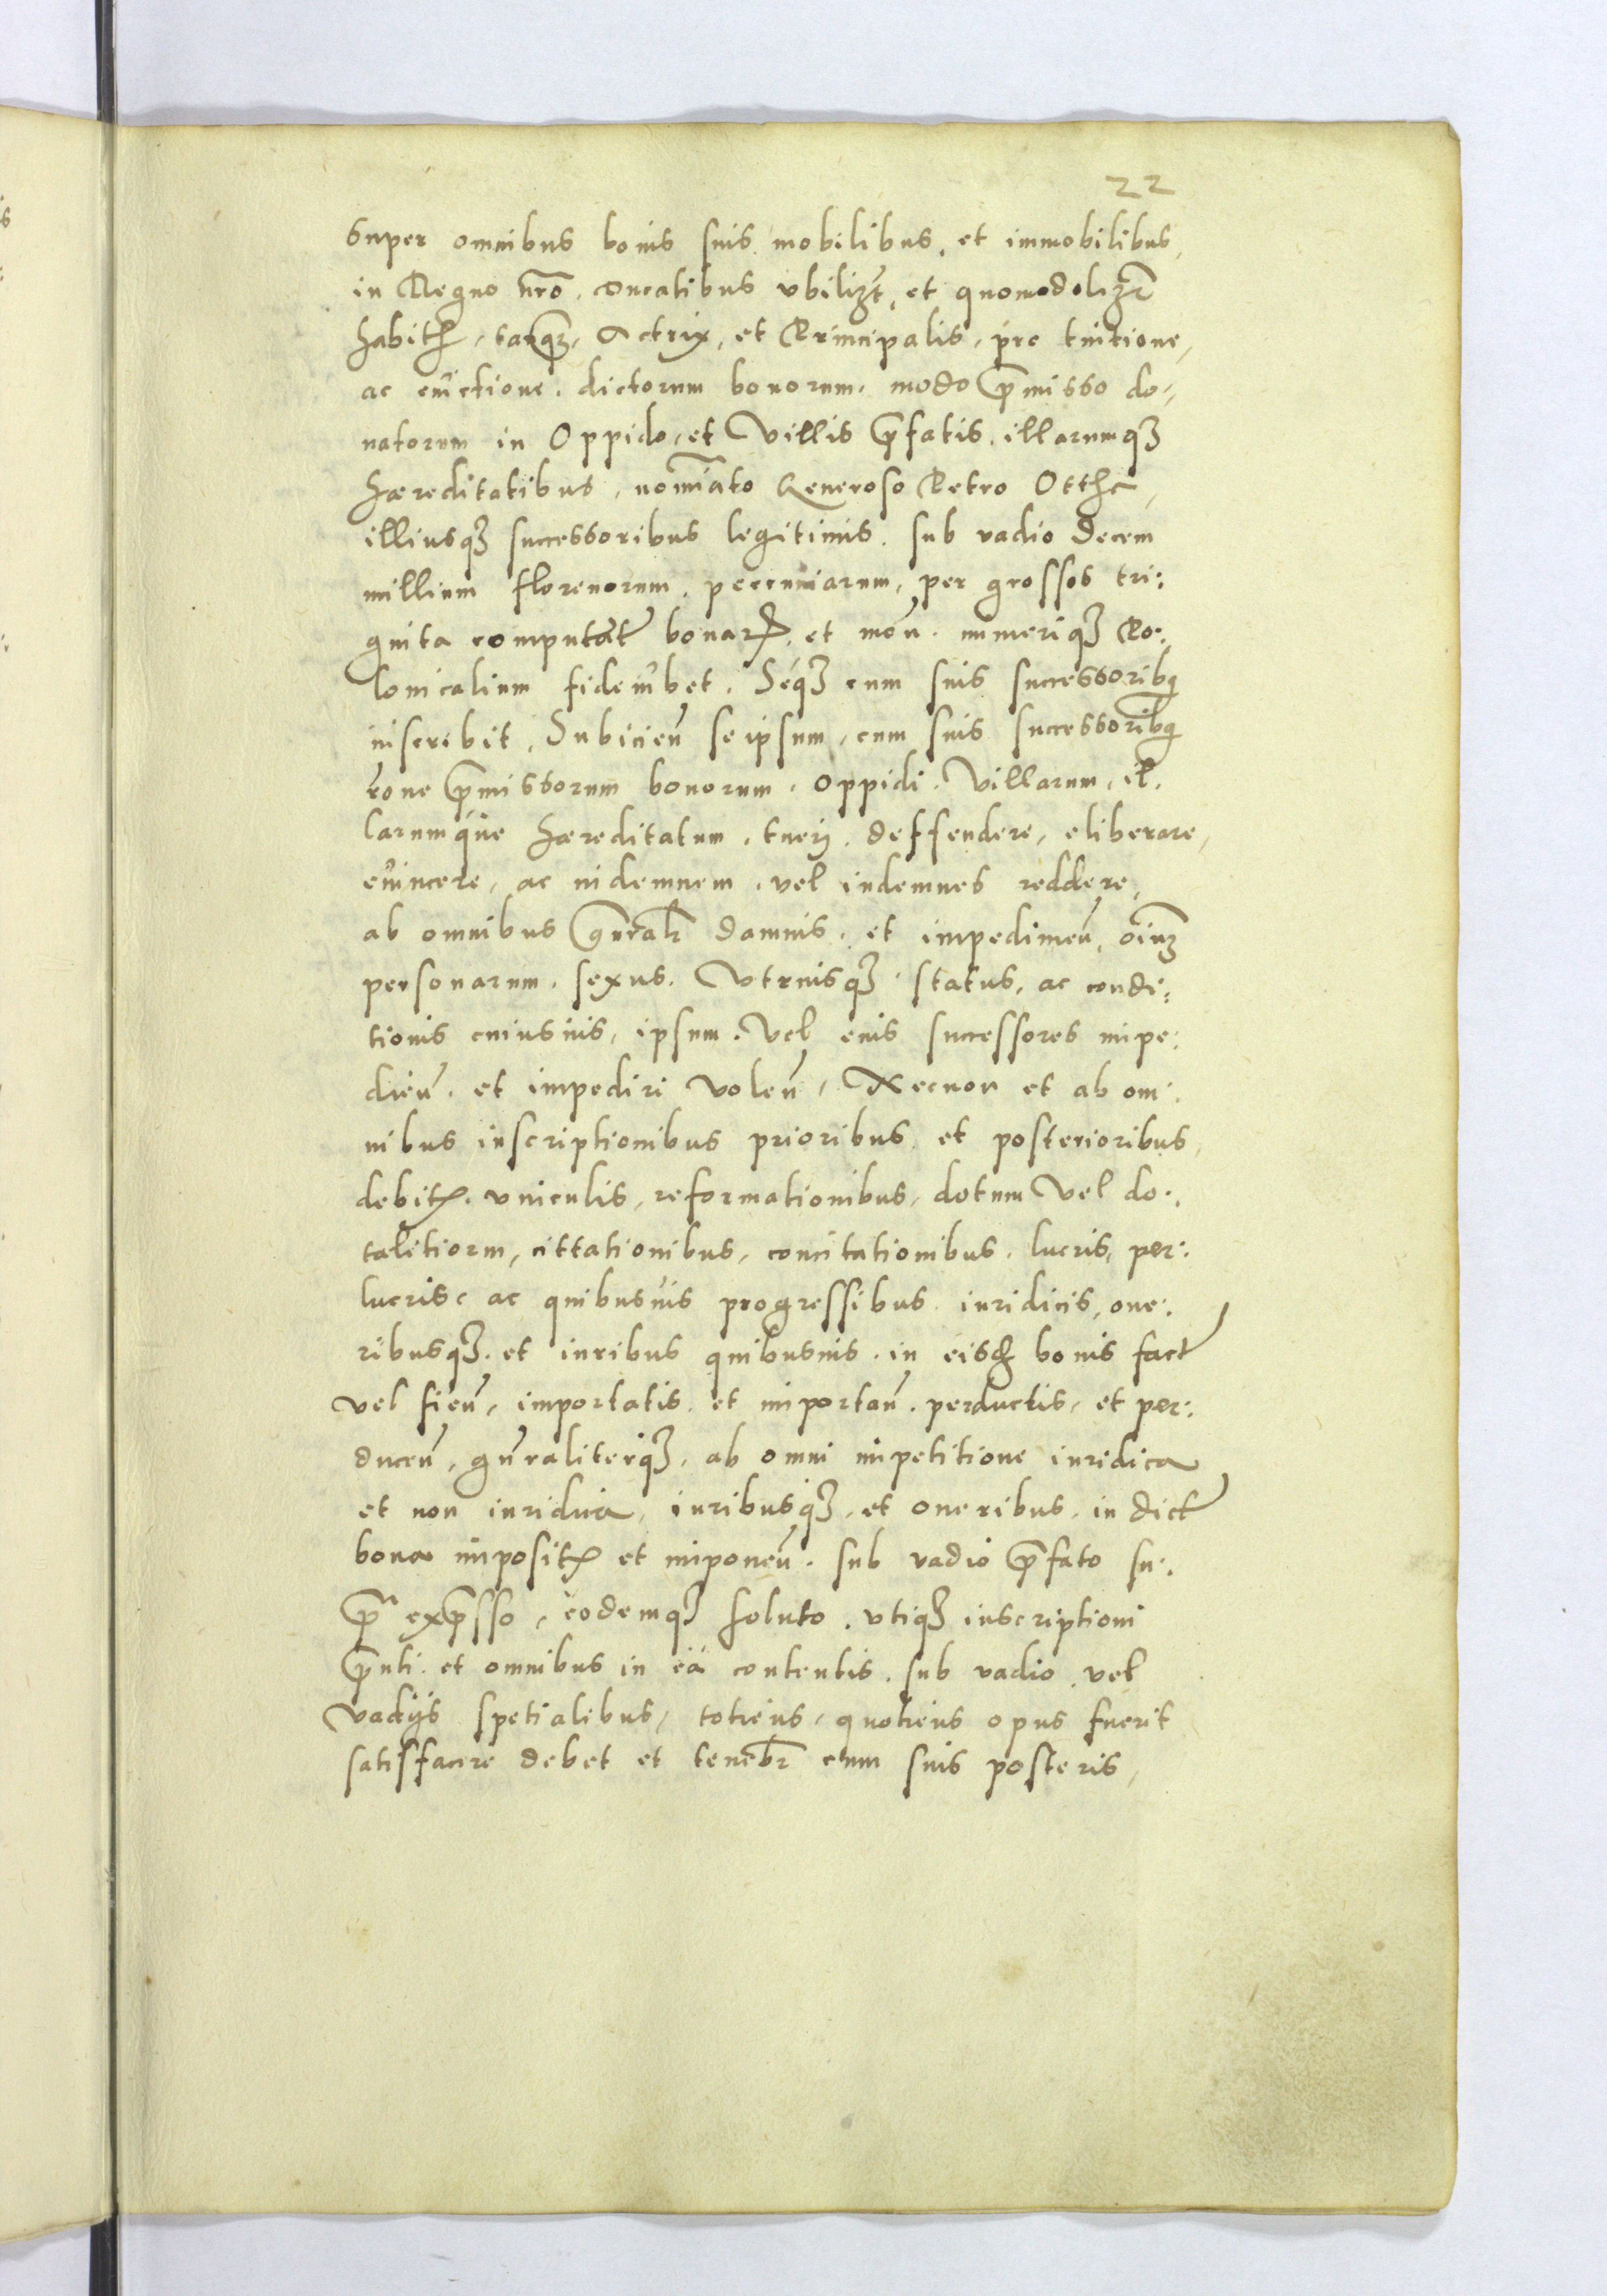 22
super omnibus bonis suis mobilibus, et immobilibus,
in Regno nr̄o, concatibus vbilizt, et quomodolizt
habitis, tanq̃, Actrix, et Principalis, pro tuitione,
ac euictione, dictorum bonorum, modo p̄misso do-
natorum in Oppido, et Villis p̄fatis, illarumq3
haereditatibus, nomiāto Generoso Petro Ottha,
illiusq3 successoribus legitimis, sub vadio decem
millium florenorum, peccuniarum, per grossos tri:
ginta computat̄ bonar, et mon̄, numeriq3 Po:
lonicalium fideiubet. Seq3 cum suis successorib9
inscribit, Subicien̄ seipsum, cum suis successorib9
r̄one p̄missorum bonorum, oppidi, Villarum, il.
larumque haereditatum, tuerj, deffendere, eliberare,
euincere, ac indemnem, vel indemnes reddere,
ab omnibus gn̄ral̄r damnis, et impedimen̄, oīum
personarum, sexus, Vtriusq3 status, ac condi:
tionis cuiusuis, ipsum, Vel eius successores impe:
dien̄, et impediri volen̄, Necnon et ab om:
nibus inscriptionibus prioribus, et posterioribus,
debitis, vniculis, reformationibus, dotum Vel do:
talitiorm, cittationibus, concitationibus, lucris, per:
lucris, ac quibusuis progressibus iuridicis, one:
ribusq3, et iuribus quibusuis, in eisd bonis fact
vel fien̄, importatis, et importan̄, perductis, et per:
ducen̄, gn̄raliterq3, ab omni impetitione iuridica
et non iuridica, iuribusq3, et oneribus, in dict
bona impositis et imponen̄, sub vadio p̄fato su:
p̄ exp̄sso, eodemq3 soluto, vtiq3 inscriptioni
p̄nti, et omnibus in ea contentis, sub vadio, vel
vadijs spetialibus, totiens, quotiens opus fuerit
satisfacere debet et tenebr̄ cum suis posteris,